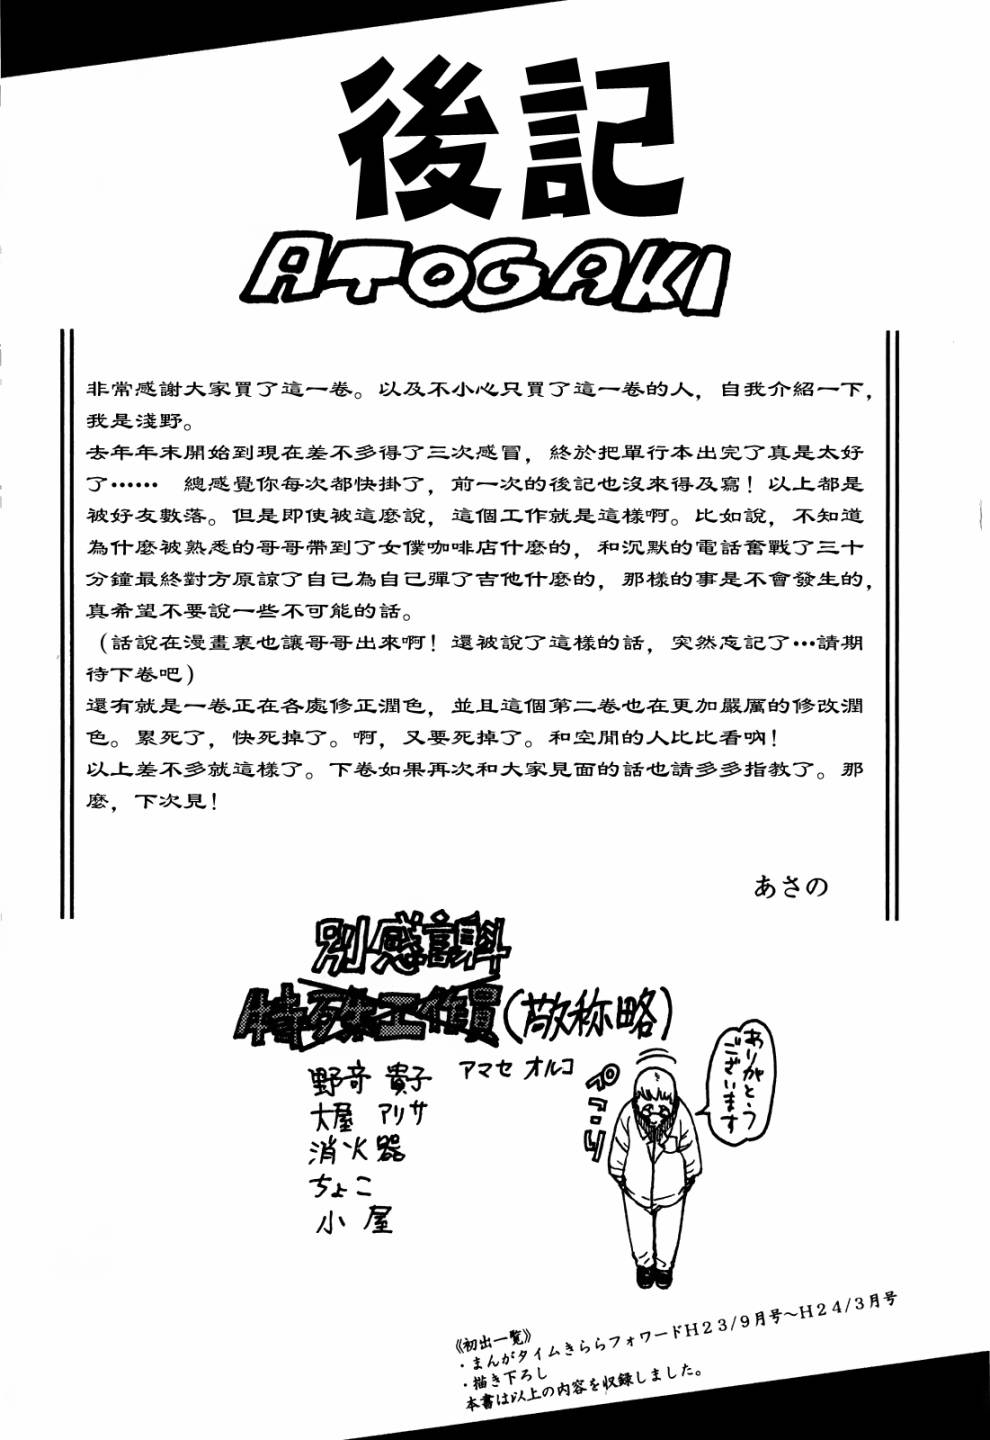 後記
ATOGAKI
非常感謝大家買了這一卷。以及不小心只買了這一卷的人，自我介紹一下，
我是淺野。
去年年末開始到現在差不多得了三次感冒，終於把單行本出完了真是太好
了……　總感覺你每次都快掛了，前一次的後記也沒來得及寫！以上都是
被好友數落。但是即使被這麼說，這個工作就是這樣啊。比如說，不知道
為什麼被熟悉的哥哥帶到了女僕咖啡店什麼的，和沉默的電話奮戰了三十
分鐘最終對方原諒了自己為自己彈了吉他什麼的，那樣的事是不會發生的，
真希望不要說一些不可能的話。
（話說在漫畫裏也讓哥哥出來啊！還被說了這樣的話，突然忘記了…請期
待下卷吧）
還有就是一卷正在各處修正潤色，並且這個第二卷也在更加嚴厲的修改潤
色。累死了，快死掉了。啊，又要死掉了。和空閒的人比比看吶！
以上差不多就這樣了。下卷如果再次和大家見面的話也請多多指教了。那
麼，下次見！
あさの
特殊工作員(敬称略)
野奇 貴子　アマセ オルコ
大屋 アリサ
消火器
ちょこ
小屋
ペこり
ありがとう
ございます
《初出一覧》
・まんがタイムきららフォワードH23/9月号～H24/3月号
・描き下ろし
本書は以上の内容を収録しました。